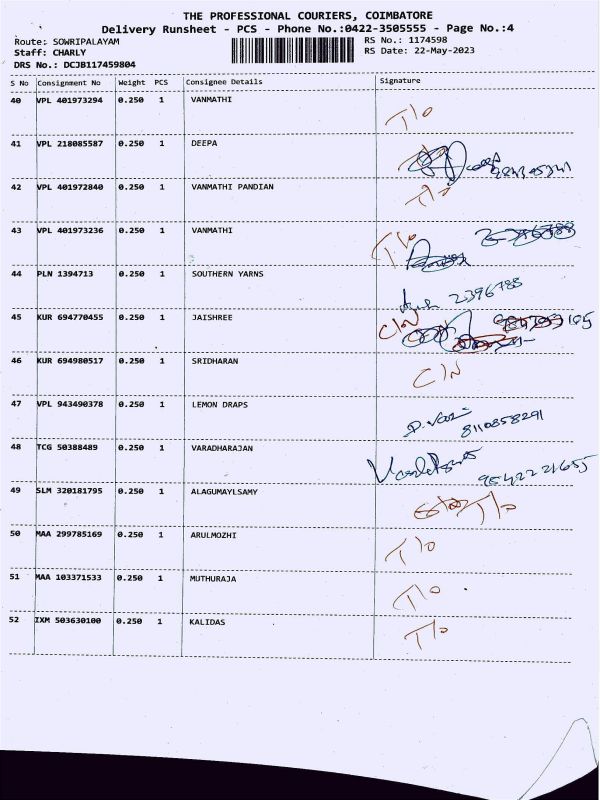 THE PROFESSIONAL COURIERS, COIMBATORE
Delivery Runsheet - PCS - Phone No.:0422-3505555 - Page No.:4
Route: SOWRIPALAYAM RS No.: 1174598
Staff: CHARLY RS Date: 22-May-2023
DRS No.: DCJB117459804
S No Consignment No Weight PCS Consignee Details Signature
40 VPL 401973294 0.250 1 VANMATHI T/o
41 VPL 218085587 0.250 1 DEEPA
42 VPL 401972840 0.250 1 VANMATHI PANDIAN T/o
43 VPL 401973236 0.250 1 VANMATHI T/o
44 PLN 1394713 0.250 1 SOUTHERN YARNS 2396788
45 KUR 694770455 0.250 1 JAISHREE C/N
46 KUR 694980517 0.250 1 SRIDHARAN C/N
47 VPL 943490378 0.250 1 LEMON DRAPS 8110858291
48 TCG 50388489 0.250 1 VARADHARAJAN
49 SLM 320181795 0.250 1 ALAGUMAYLSAMY T/o
50 MAA 299785169 0.250 1 ARULMOZHI T/o
51 MAA 103371533 0.250 1 MUTHURAJA T/o
52 IXM 503630100 0.250 1 KALIDAS T/o